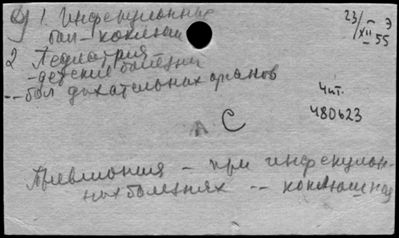 1. Инфекционные
бол - коклюш
2 Педиатрия
- детские болезни
-- бол дыхательных органов
23/XII - 55
Э
Чит.
480623
А С
Пневмония - при инфекцион-
ных болезнях -- коклюшная